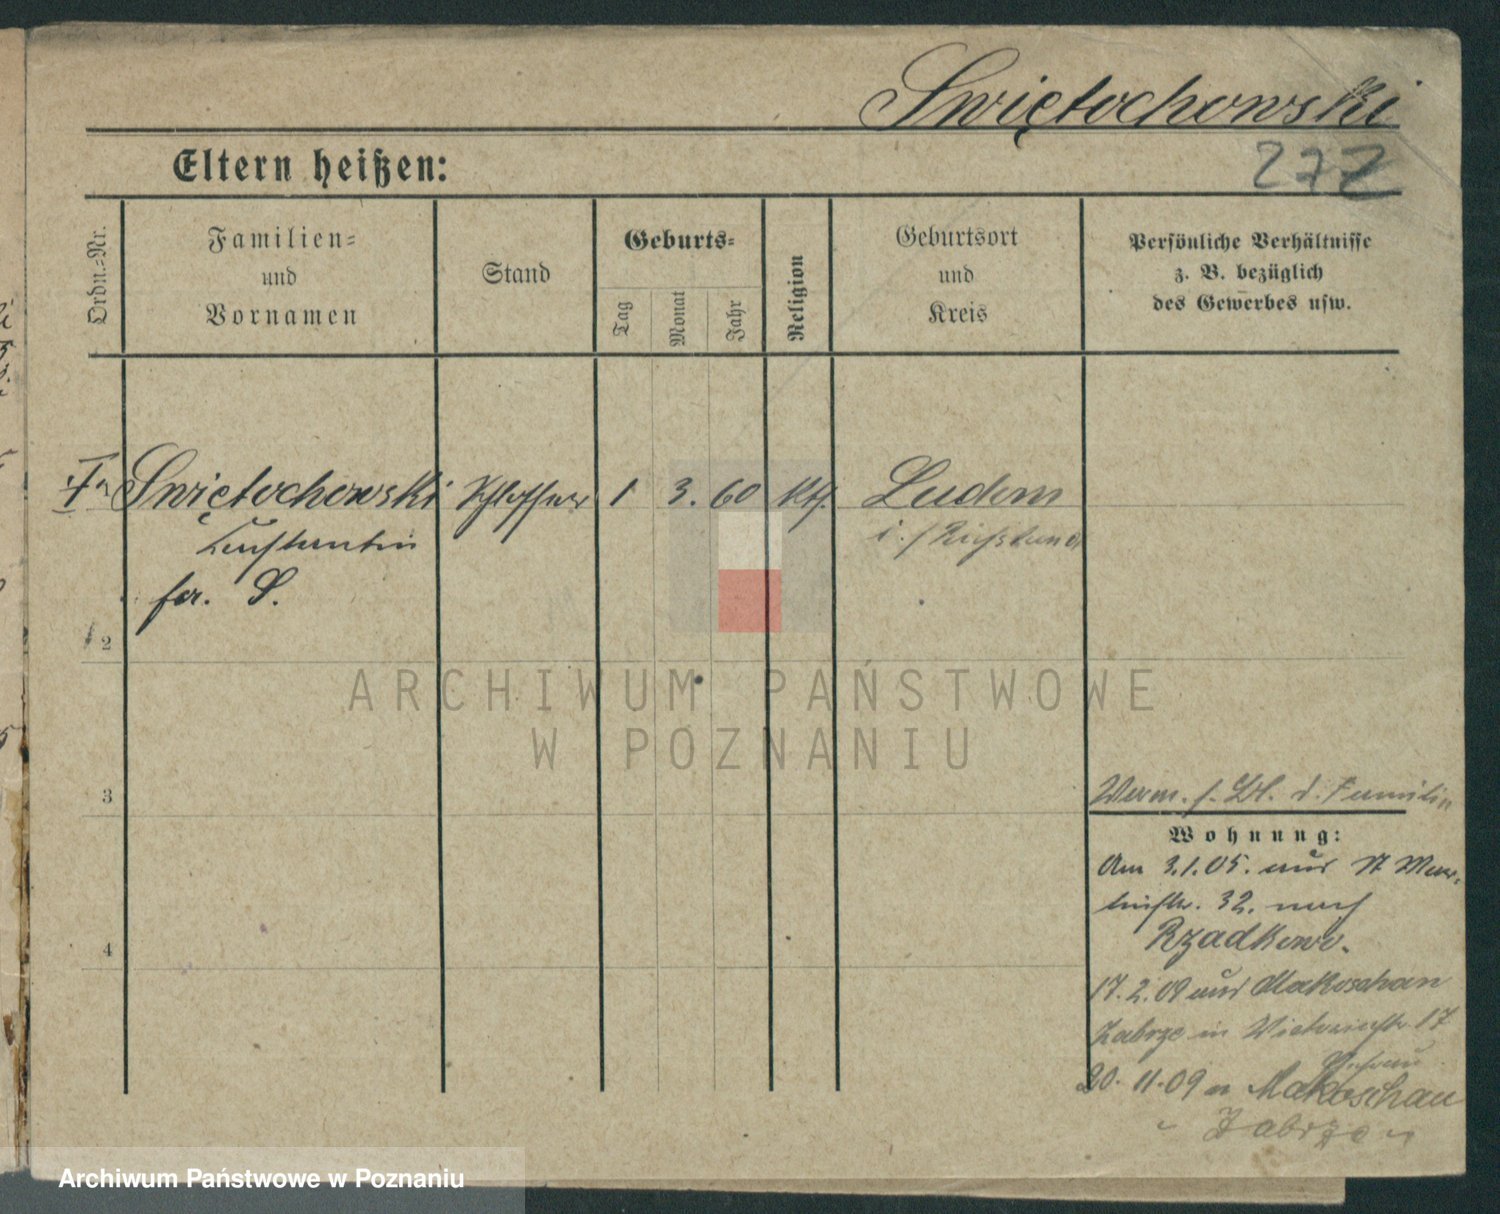 Swiętochowski
Eltern heißen:
277
Ordn.-Nr.
Familien-
und
Vornamen
Stand
Geburts-
Tag
Monat
Jahr
Religion
Geburtsort
und
Kreis
Persönliche Verhältnisse
z. B. bezüglich
des Gewerbes usw.
Swiętochowski Schlosser 1 3. 60 kth. Ludom
Constantin
S.
2
ARCHIWUM PAŃSTWOWE
W POZNANIU
3
d. Familie
Wohnung:
Am 3.1.05. aus St Mar-
tinstr. 32. nach
Rzadkowo.
17.2.09 aus Makoschau
Zabrze in Victoriastr. 17
20.11.09 n Makoschau
Zabrze
4
Archiwum Państwowe w Poznaniu